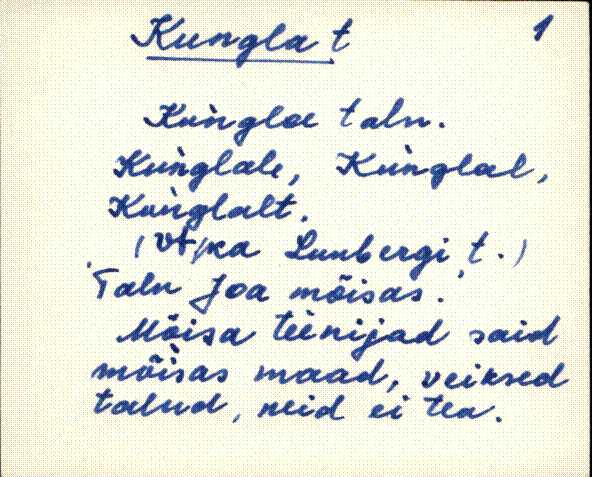 Kungla t 1
Kun̒glae talu.
Kun̒glale, Kun̒glal,
Kun̒glalt.
(vt ka Lunbergi t.)
Talu Joa mõisas.
Mõisa teenijad said
mõisas maad, veiksed
talud, neid ei tea.